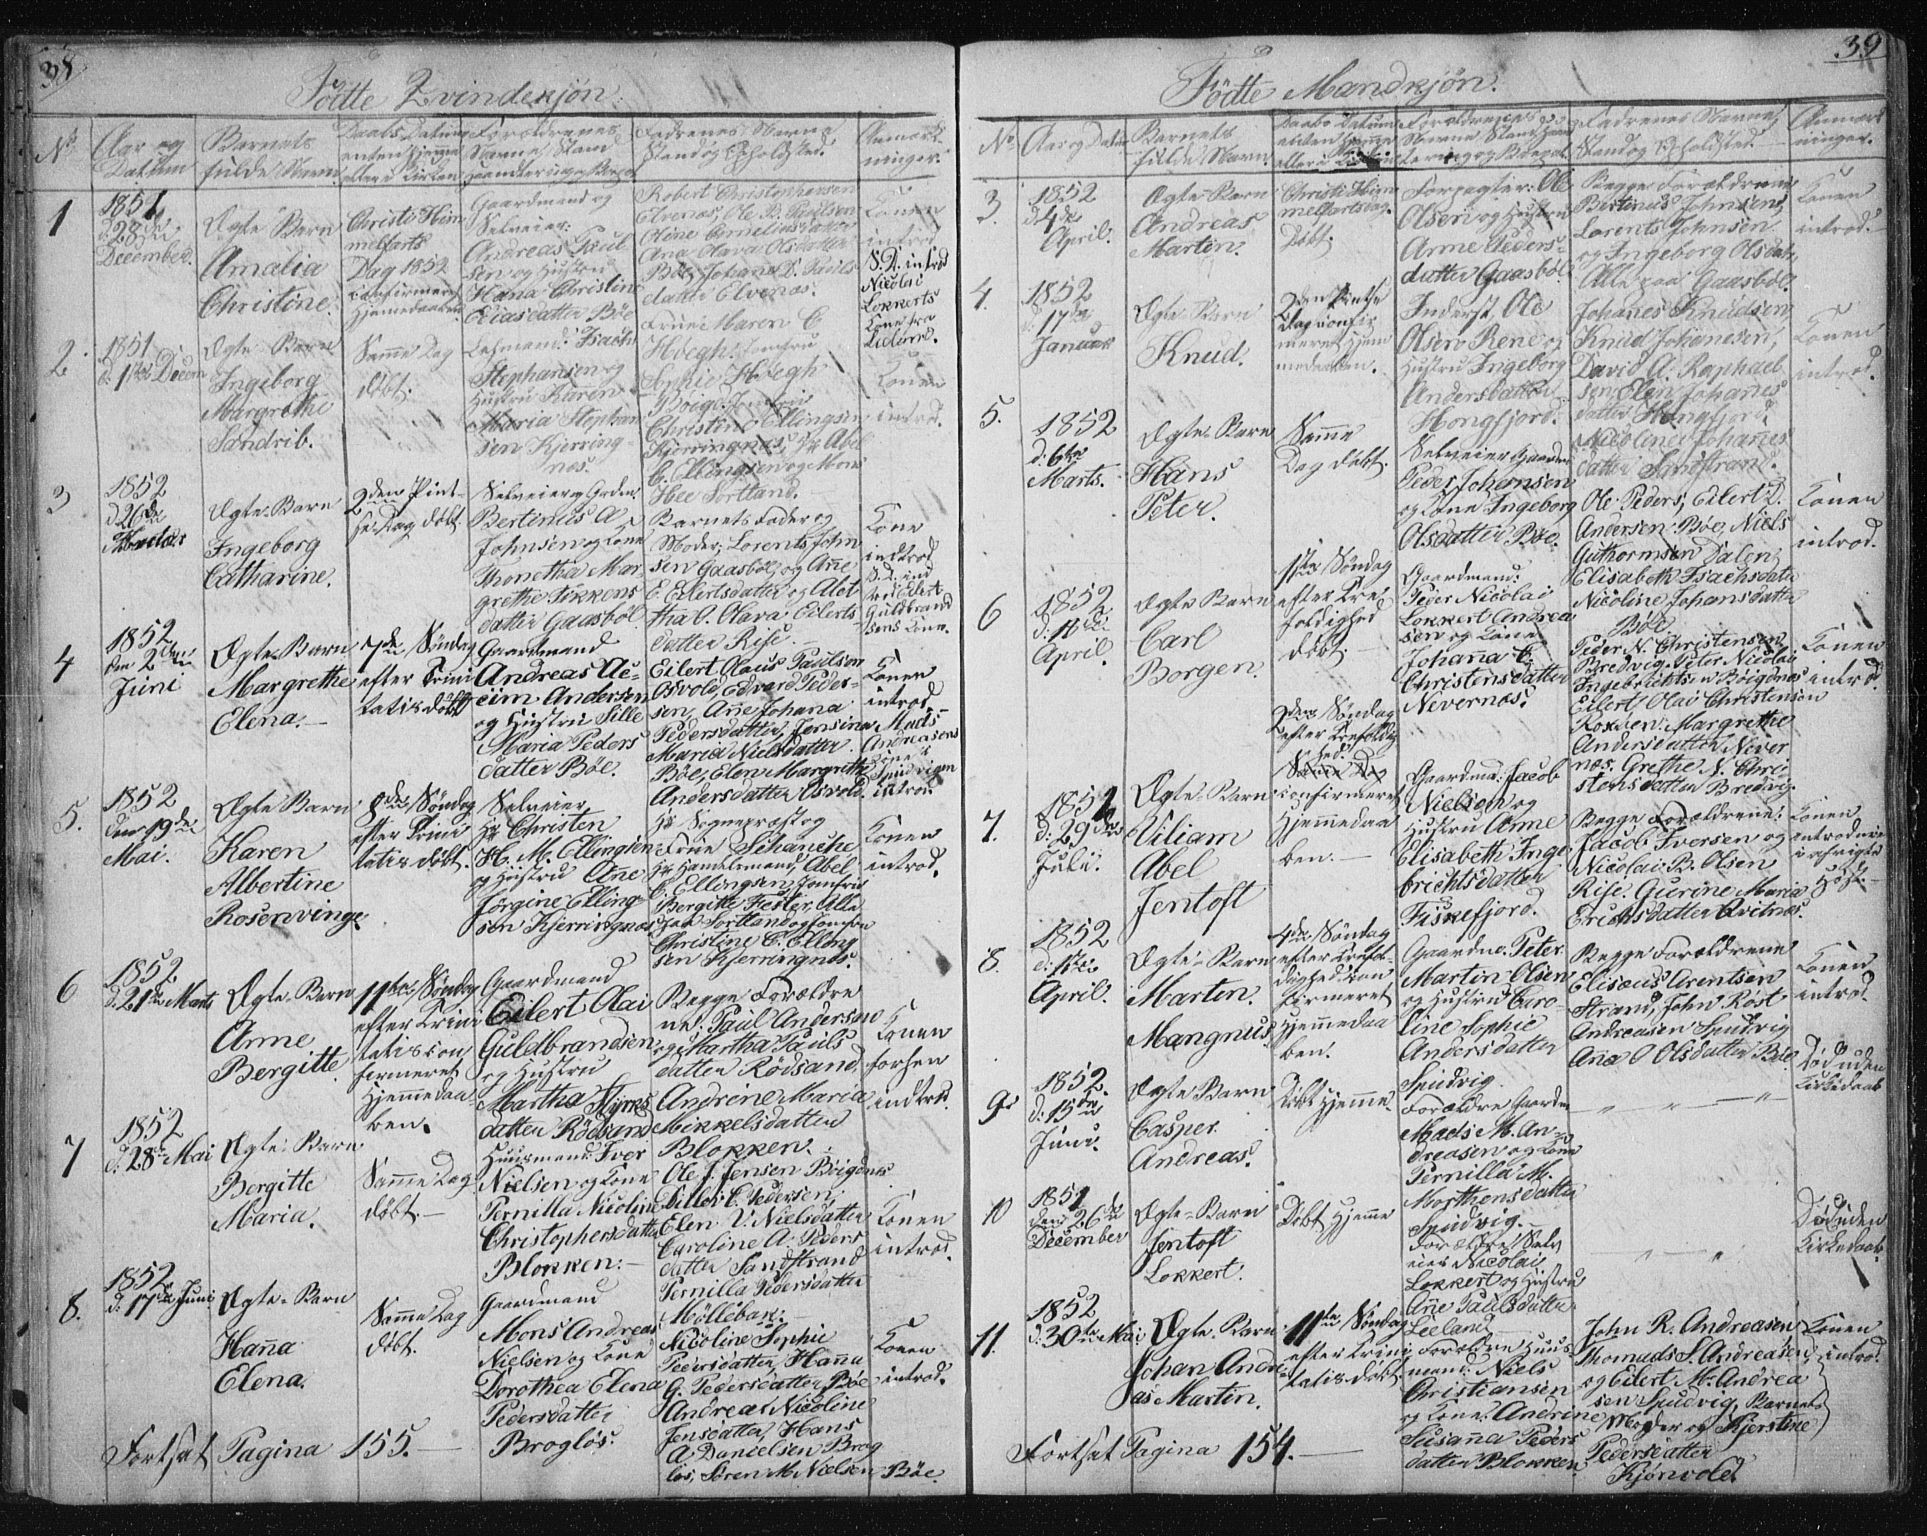 38
Födte Qvindekjön.
No
Aar og Datum
Barnets fulde Navn
Daabs Datum enten Hjemme eller i Kirken
Forældrenes Navne, Stand Haandtering og Bopæl
Fadrenes Navne, Stand og Opholdsted.
Anmærkninger.
1
1851
d: 28de
December.
Ægte Barn
Amalia
Christine.
Christi Him
melfarts
Dag 1852
confirmeret
Hjemmedaaben
Gaardmand og
Selveier:
Andreas Paul
sen og Hustru
Hana Christine
Eliasdatter Böe
Robert Christophersen
Elvenæs, Ole P. Paulsen
Oline Corneliusdatter
Ana Olava Olsdatter
Böe, Johana D. Pauls
datter Elvenæs.
Konen
introd
S. D. introd
Nicolai
Lokkerts
Kone fra
2.
1851
d: 1ste Decem
Ægte Barn
Ingeborg
Margrethe
Sandrib.
Samme Dag
döbt.
Lehmand: Isach
Stephansen og
Hustru Karen
Maria Stephan
sen Kjerring-
næs.
Frue Maren C.
Höegh, Jomfru
Sophie Höegh
Boigen, Jomfru
Christine Ellingsen
Kjerringnæs, Hr Abel
C. Ellingsen og Mons
Hee Sortland.
Konen
introd.
3
1852
d 26de
Ægte Barn
Ingeborg
Catharine.
2den Pint-
se Dag döbt.
Selveier og Grdm.
Bertinus A
Johnsen og Kone
Thonetha Mar-
grethe Tökkens
datter Gaasböl
Barnets Fader og
Moder, Lorents John
sen Gaasböl og Ane
E. Eilertsdatter og Alet
tha O. Olava Eilerts
datter Rise.
Kone
indtrod
S. D. ind
ved Eilert
Guldbrand
sens Kone.
4
1852
den 2den
Juni
Ægte Barn
Margrethe
Elena.
7de Söndag
efter Trini
tatis döbt
Gaardmand
Andreas Ue-
eiim Andersen
og Hustru Sille
Maria Peders
datter Böe.
Eilert Olaus Paulson
Osvold, Edvard Peder-
sen, Ane Johana
Pedersdatter, Jensina
Maria Nielsdatter.
Böe, Elen Margrethe
Andersdatter Osvold.
Konen
introd
Mads
Andreasens
Kone
Spudvigen
introd
5.
1852
den 19de
Mai.
Ægte Barn
Karen
Albertine
Rosenvinge
8de Söndag
efter Trini
tatis döbt.
Selveier
Hr Christen
H. M. Ellingsen
og Hustru Ane
Jörgine Elling
sen Kjerringnæs
Hr Sognepræst og
Frue Schanche
Hr Handelsmand, Abel
C. Ellingsen, Jomfru
Bergitte Hesler, Alle
paa Sortland og Jomfru
Christine C. Elling
sen Kjerringnæs.
Konen
introd.
6
1852
d: 21de Marts
Ægte Barn
Anne
Bergitte.
11te Söndag
efter Trini
tatis con
firmeret
Hjemmedaa
ben.
Gaardmand
Eilert Olai
Guldbrandsen
og Hustru
Martha Styrks
datter Rödsand
Begge Forældre
ne: Paul Andersen
og Martha Pauls
datter Rödsand.
Andrine Maria
Mikkelsdatter
Blokken.
Konen
forhen
indtrod.
7
1852
d: 28de Mai
Ægte Barn
Bergitte
Maria.
Samme Dag
döbt.
Huusmand: Iver
Nielsen og Kone
Pernilla Nicoline
Christophersdatter
Blokken.
Ole J. Jensen Böigenæs
Peder C. Pedersen
Elen V. Nielsdatter
Caroline A. Peders
datter Sandstrand
Pernilla Pedersdatter
Möllebak.
Konen
introd.
8.
1852
d: 17de Juni
Ægte Barn
Hana
Elena.
Samme Dag
döbt.
Gaardmand
Mons Andreas
Nielsen og Kone
Dorothea Elena
Pedersdatter
Ároglös.
Nicoline Sophie
Pedersdatter, Hana
G. Pedersdatter Böe
Andrea Nicoline
Jensdatter, Hans
A. Danielsen Brog
lös, Sören M. Nielsen Böe.
Konen
introd.
Fortsat Pagina 155.
39
Födte Mandkjön.
No
Aar og Datum
Barnets fulde Navn
Daabs Datum enten Hjemme eller i Kirken
Forældrenes Navne Stand Haandtering og Bopæl
Fadrenes Navne, Stand og Opholdsted
Anmærkninger.
3.
1852
d 4de
April.
Ægte Barn
Andreas
Martin.
Christi Him
melfartsdag.
Döbt.
Forpagter: Ole
Olsen og Hustru
Anne Peders
datter Gaasböl
Begge Forældrene
Bertinus Johnsen,
Lorents Johnsen
og Ingeborg Olsdatr
Alle paa Gaasböl.
Konen
introd.
4.
1852
d: 17de
Januar
Ægte Barn
Knud.
2den Pintse
Dag confir
meret Hjem
medaaben.
Inderst Ole
Olsen Rene og
Hustru Ingeborg
Andersdatter
Hongfjord.
Johanes Knudsen
Knud Johanesen,
David A. Raphael
sen, Elen Johanes
datter Hongfjord.
Nicoline Johanes
datter Sandstrand.
Konen
introd.
5.
1852
d: 6te
Marts.
Ægte Barn
Hans
Peter.
Samme
Dag döbt.
Selveier Gaardm
Peder Johansen
og Kone Ingeborg
Olsdatter Böe.
Ole Peders, Eilert L.
Andersen Böe, Niels
Guthormsen Dalen,
Elisabeth Isachsdatr
Nicoline Johansdatter
Böe.
Konen
introd.
6
1852
d: 18de
April.
Ægte Barn
Carl
Borgen.
11te Söndag
efter Tre
foldighed
döbt.
Gaardmand:
Peder Nicolai
Lokkert Andrea
sen og Kone
Johana C.
Christensdatter
Nevernæs.
Peder N. Christensen
Bredvig, Peter Nicolai
Ingebrichtsen Böigenæs
Eilert Olai Christensen
Roksöen. Margrethe
Andersdatter Never
næs, Grethe N. Chri
stensdatter Bredvig.
Konen
introd.
7.
1851
d: 29de
Juli.
Ægte Barn
Viliam
Abel
Jentoft
2den Söndag
efter Trefoldig
hed.
confirmeret
Hjemmedaa
ben.
Gaardmd. Jacob
Nielsen og
Hustru Anne
Elisabeth Inge-
brichtsdatter
Fiskefjord.
Begge Forældrene:
Jacob Iversen og
Nicolai B. Olsen
Rise, Gurine Maria
Erichsdatter Qvitnæs.
Konen
introduceret
i afvigte
Höst.
8.
1852
d: 1ste
April.
Ægte Barn
Martin
Mangnus.
4de Söndag
efter Trefol-
dighed Con
firmeret
Hjemmedaa
ben.
Gaardmd. Peter
Martin Olsen
og Hustru Caro-
line Sophie
Andersdatter
Spudvig.
Begge Forældrene
Elisæus Arentsen
Strand, John Röst
Andreasen Spudvig
Ana O Olsdatter Böe
Konen
introd.
9.
1852.
d: 15de
Juni.
Ægte Barn
Casper
Andreas.
Döbt Hjemme.
Forældre Gaardm
Mads M. An-
dreasen og Kone
Pernilla M.
Morthensdatter
Spudvig.
Död uden
Kirkedaab
10
1851
den 26de
December
Ægte Barn
Jentoft
Lokkert.
Döbt Hjemme
Forældre, Selv
eier Nicolai
Lokkert og Hustru
Ane Paulsdatter
Leeland.
Död uden
Kirkedaab.
11.
1852
d: 30te Mai
Ægte Barn
Johan Andre
as Martin.
11te Söndag
efter Trini
tatis döbt
Forældre Huus-
mand: Niels
Christiansen
og Kone Andrine
Susana Peders
datter Blokken
John R. Andreasen
Thomads S. Andreasen
og Eilert M. Andrea
sen Spudvig, Barnets
Moder og Kjerstine
Pedersdatter
Kjönvold
Konen
introd.
Fortsat Pagina 154.